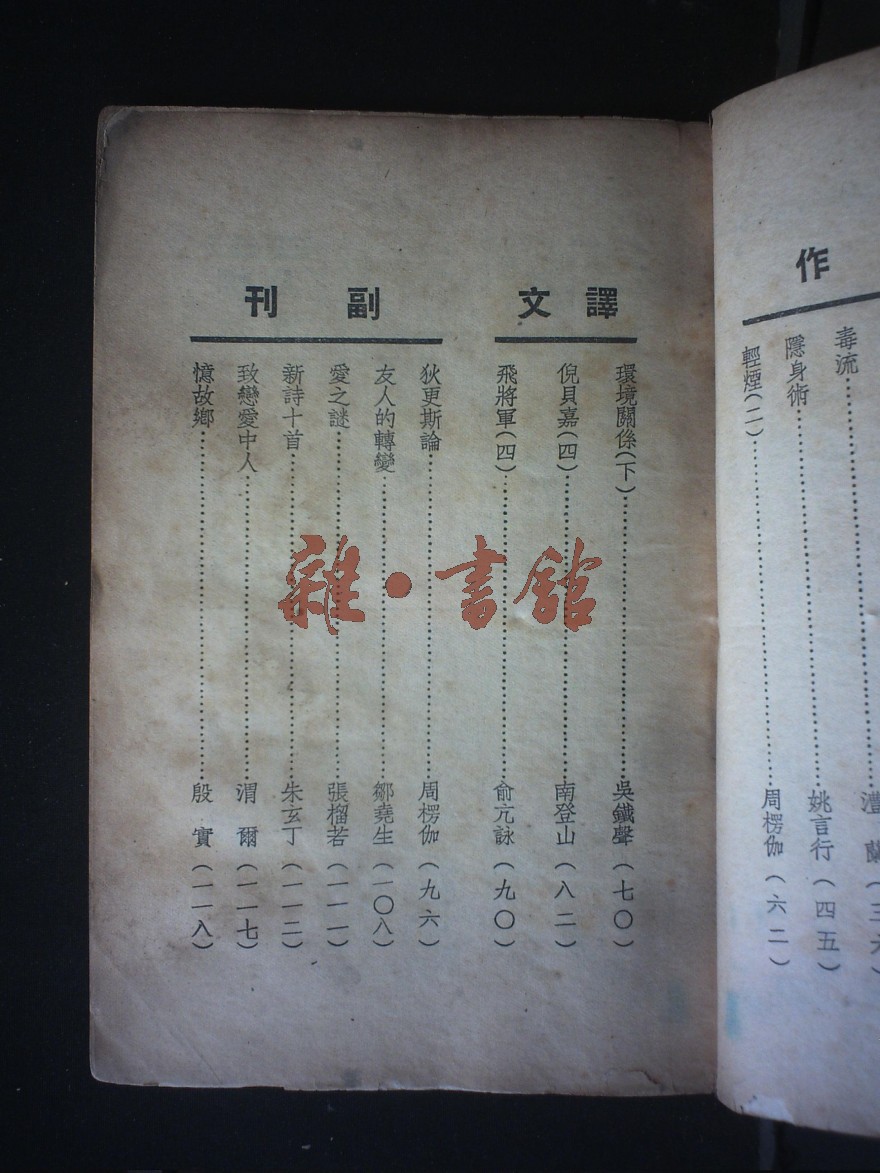 作
毒流
隱身術……姚言行(四五)
輕煙(二)……周楞伽(六二)
譯文
環境關係(下)……吳鐵聲(七〇)
倪貝嘉(四)……南登山(八二)
飛將軍(四)……俞亢詠(九〇)
副刊
狄更斯論……周楞伽(九六)
友人的轉變……鄒堯生(一〇八)
愛之謎……張榴若(一一一)
新詩十首……朱玄丁(一一二)
致戀愛中人……渭爾(一一七)
憶故鄉……殷實(一一八)
雜·書館